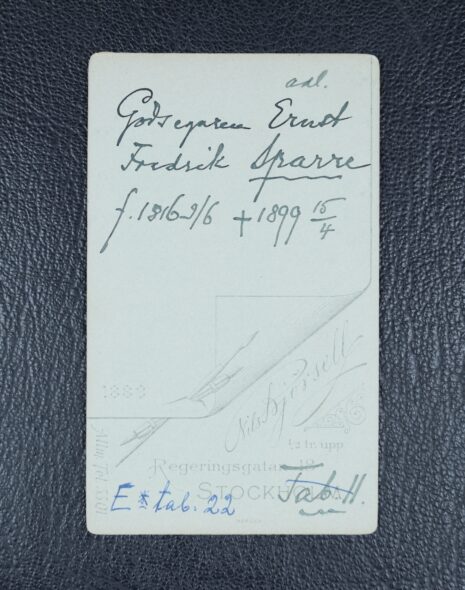 adl.
Godsegaren Ernst
Fredrik Sparre
f. 1816 9/6 + 1899 15/4
1883
Nils Björsell
½ tr. upp
Regeringsgatan 18
STOCKHOLM
Allm. Tel.
E * tab. 22
Tab H.